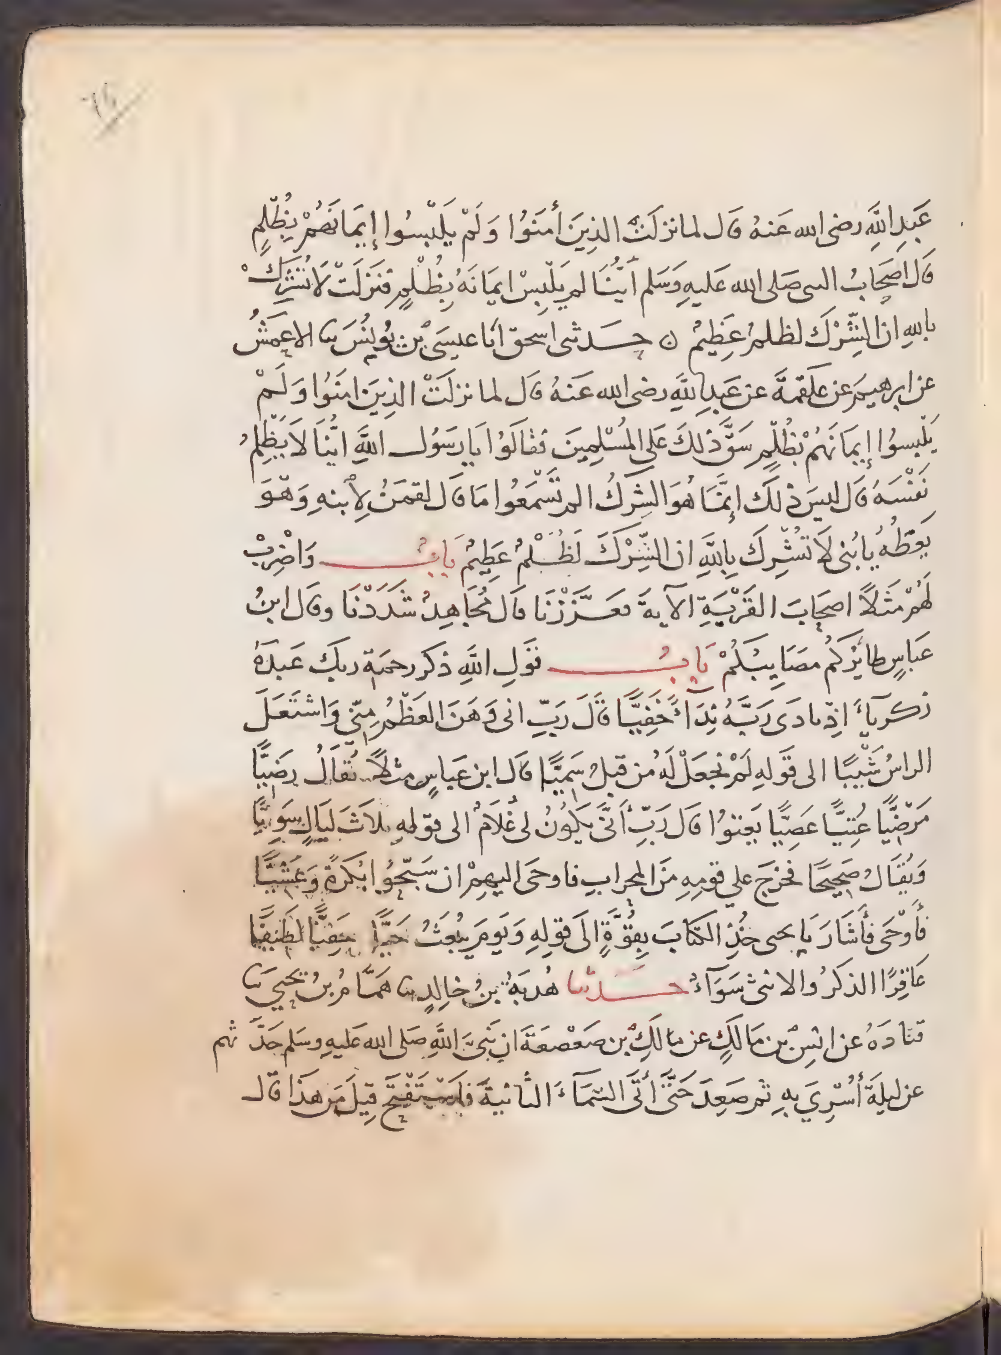 عَبدِ اللَّهِ رضى الله عَنهُ قَال لما نزلَتْ الذِينَ أٰمَنُوا وَلَمْ يَلْبِسُوا إِيمَانَهُمْ بِظُلْمٍ
قَال اصحَابُ النبى صَلى الله عَليهِ وَسَلم أَيُّنَا لم يَلْبِسْ ايمَانَهُ بِظُلْمٍ فنَزلَتْ لَا تُشْرِكْ
باللهِ ان الشِّرْكَ لظلمٌ عَظِيمٌ ن حَــدثنى اسحق انا عيسَى بْن يُونُسَ نا الاعمَشُ
عن ابرهيمَ عن عَلقمةَ عن عَبدِ اللَّهِ رضى الله عَنهُ قَال لما نزلَتْ الذِينَ امنُوا وَلَمْ
يَلْبسوا إِيمانَهُمْ بظُلْمٍ شَقَّ ذلكَ عَلى المُسْلِمِينَ فقَالَوُا يَا رَسُول اللَّهِ ايُّنَا لَا يَظْلِمُ
نَفْسَهُ قَال ليسَ ذلكَ إِنَّمَا هُوَ الشرْكُ الم تَسْمَعُوا مَا قَال لقمَنُ لِابنهِ وَهْوَ
يَعِظُهُ يا بُنى لَا تشْرِك بِاللَّهِ ان الشِّرْكَ لَظُلْمٌ عَظِيمٌ بَابُ وَاضْرِبْ
لَهُمْ مَثَلًا اصحَابَ القَرْيَةِ الآيةَ فعَزَّزْنَا قَال مُجَاهِدٌ شَدَّدْنَا وقَال ابنُ
عَباسٍ طائِرُكُمْ مصَايبُكُمْ بَابُ قوْلِ اللَّهِ ذكر رحمَةِ ربك عَبدَهُ
زكريآءَ اذ نَادَى رَبَّهُ نِدَاءً خَفِيًّا قَالَ رَبِّ انى وَهَنَ العَظْمُ مِنِّي وَاشتَعَلَ
الراسُ شَيْبًا الى قَولهِ لَمْ نَجعَلْ لَهُ من قبلُ سَمِيًّا قَال ابن عَباسٍ مثلًا يُقَالُ رضِيًّا
مَرْضِيًّا عُتِيًّا عَصِيًّا يَعتوُا قَال رَبِّ أَنَّى يَكونُ لى غُلَامٌ الى قوله ثلاثَ لَيَالٍ سَوِيًّا
وَيُقَالُ صَحِيحًا فخرَجَ على قومِهِ منَ المحرابِ فاوحَى اليهِمْ ان سَبّحُوا بُكْرَةً وَعَشيًّا
فَأَوْحَى فَأَشَارَ يَا يحيى خذِ الكتَابَ بِقُوَّةٍ إِلَى قولِهِ وَيَومَ يُبعَثُ حَيًّا حَفِيًّا لَطِيفًا
عَاقِرًا الذكَرُ والانثى سَوَآءٌ حَــدثنا هُدبَةُ بنُ خالدٍ نا هَمَّامُ بنُ يَحْيَى نا
قتَادَةُ عن انسِ بْنِ مَالكٍ عن مالِكِ بْن صَعْصَعَةَ ان نَبِيَّ اللَّهِ صَلى الله عَليهِ وسَلم حَدَّثهم
عن لَيلَةَ أُسْرِيَ بِهِ ثم صَعِدَ حَتَّى أَتَى السَّمَآءَ الثانيَةَ فَاسْتَفْتَحَ قِيلَ مَن هَذَا قَال